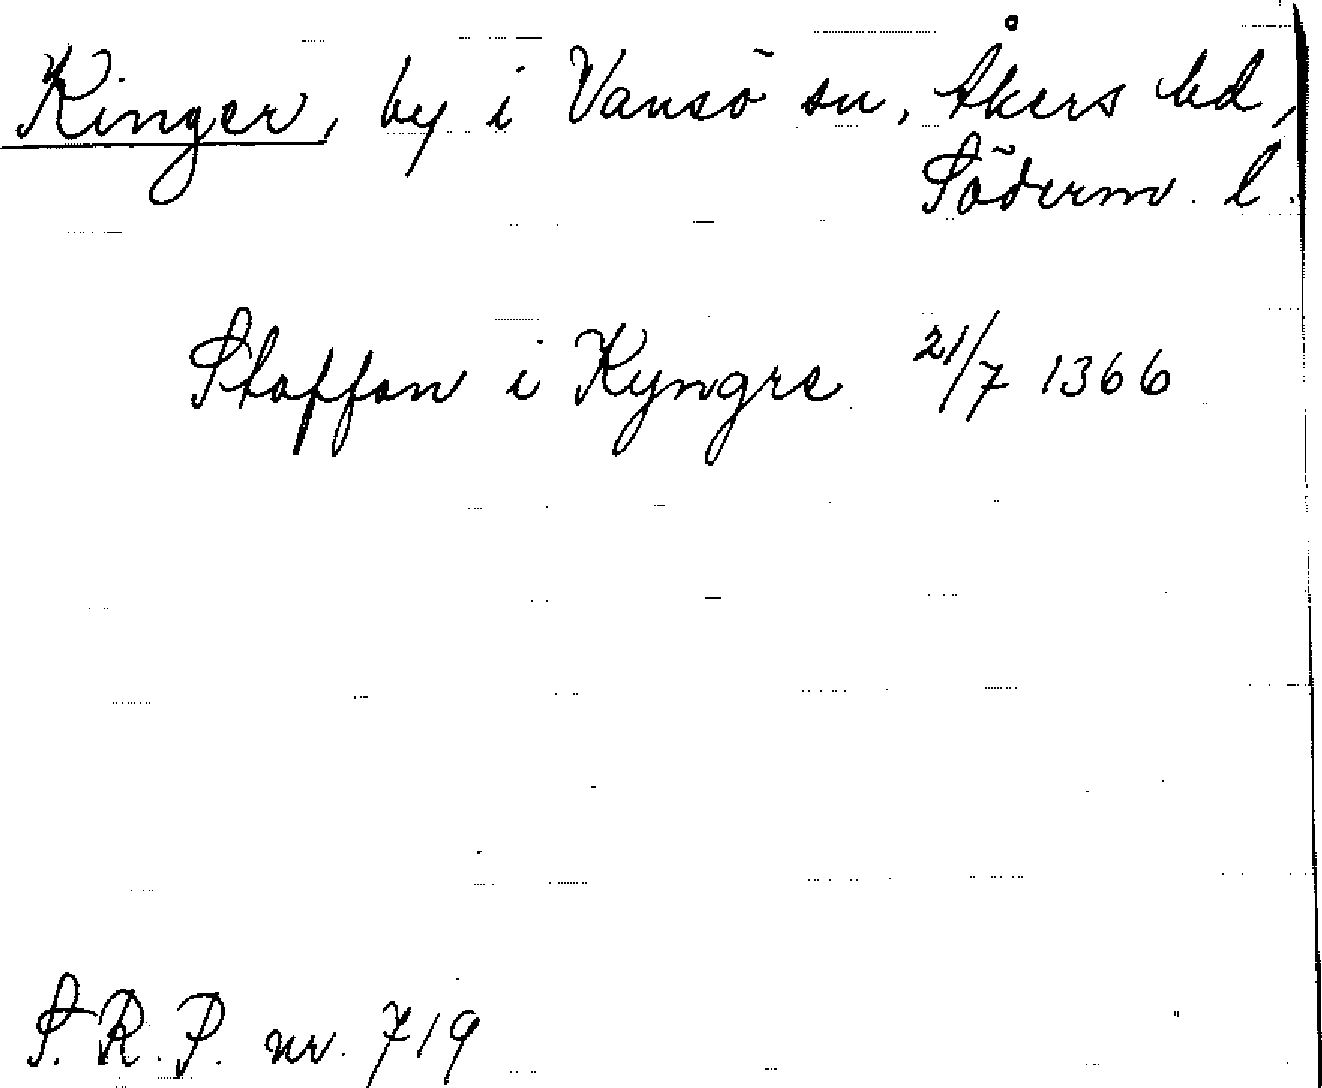 Kinger, by i Vansö sn, Åkers hd,
Söderm. l.
Staffan i Kyngre 21/7 1366
S.R.P. nr. 719